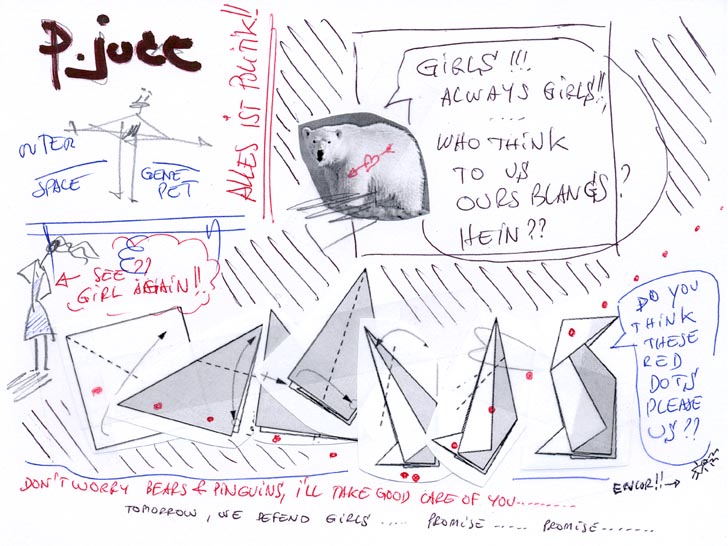 p. jucc
ALLES IST POLITIK!!
OUTER
SPACE
GENE
PET
GIRLS !!!
ALWAYS GIRLS!!
.....
WHO THINK
TO US
OURS BLANCS ?
HEIN ??
SEE ??
GIRL AGAIN!!
DO YOU
THINK
THESE
RED
DOTS
PLEASE
US ??
DON'T WORRY BEARS & PINGUINS, I'LL TAKE GOOD CARE OF YOU.........
ENCOR!! →
TOMORROW, WE DEFEND GIRLS ..... PROMISE ..... PROMISE........